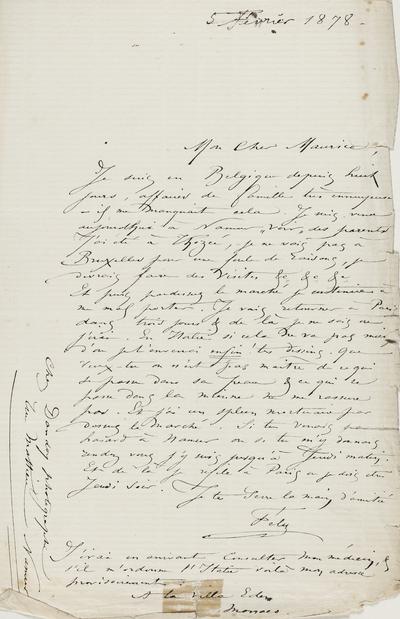 5 Février 1878 -
Mon Cher Maurice,
Je suis en Belgique depuis huit
jours, affaires de famille très ennuyeuse
- il me manquait cela. Je suis venu
aujourd'hui à Namur voir des parents
J'ai été à Thozée, je ne vais pas à
Bruxelles pour une foule de raisons, je
devrais faire des visites &c &c &c
Et puis pardessus le marché je continue à
me mal porter. Je vais retourner à Paris
dans trois jours & de là je ne sais ce
ferai. En Italie si cela ne va pas mieux
d'où je t'enverrai enfin tes dessins. Que
veux-tu on n'est pas maître de ce qui
se passe dans sa peau & ce qui se
passe dans la mienne ne me rassure
pas. Et j'ai un spleen nocturne par
dessus le marché. Si tu venais par
hasard à Namur ou si tu m'y donnais
rendez vous j'y suis jusqu'à Jeudi matin.
Et de là je file à Paris où je dois être
Jeudi soir.
Je te serre la main d'amitié
Fély
J'irai en arrivant consulter mon médecin, &
s'il m'ordonne l'Italie voilà mon adresse
provisoirement :
A la Villa Eden
Monaco
Chez Dandoy photographe
Namur